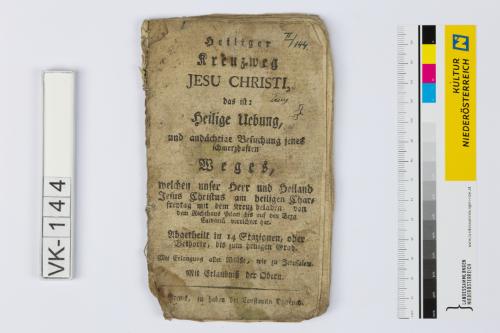 VK-144
II/144
Heiliger
Kreuzweg
JESU CHRISTI,
das ist:
Heilige Uebung,
und andächtige Besuchung jenes
schmerzhaften
Weges,
welchen unser Herr und Heiland
Jesus Christus am heiligen Char-
freytag mit dem Kreuz beladen von
dem Richthaus Pilati bis auf den Berg
Calvariä verrichtet hat.
Abgetheilt in 14 Stazionen, oder
Bethorte, bis zum heiligen Grab.
Mit Erlangung aller Abläße, wie zu Jerusalem.
Mit Erlaubniß der Obern.
zu haben bei
KULTUR
NIEDERÖSTERREICH
LANDESSAMMLUNGEN
NIEDERÖSTERREICH